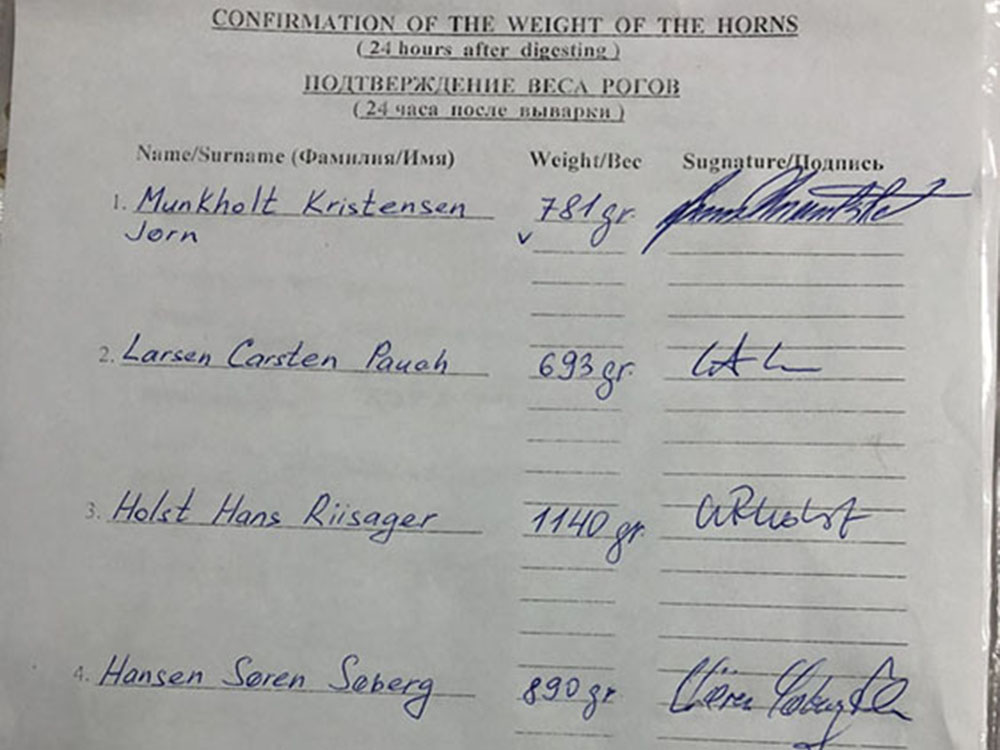 CONFIRMATION OF THE WEIGHT OF THE HORNS
(24 hours after digesting)
ПОДТВЕРЖДЕНИЕ ВЕСА РОГОВ
(24 часа после выварки)
Name/Surname (Фамилия/Имя) Weight/Вес Sugnature/Подпись
1. Munkholt Kristensen 781 gr.
Jørn v
2. Larsen Carsten Pauah 693 gr.
3. Holst Hans Riisager 1140 gr.
4. Hansen Søren Søberg 890 gr.